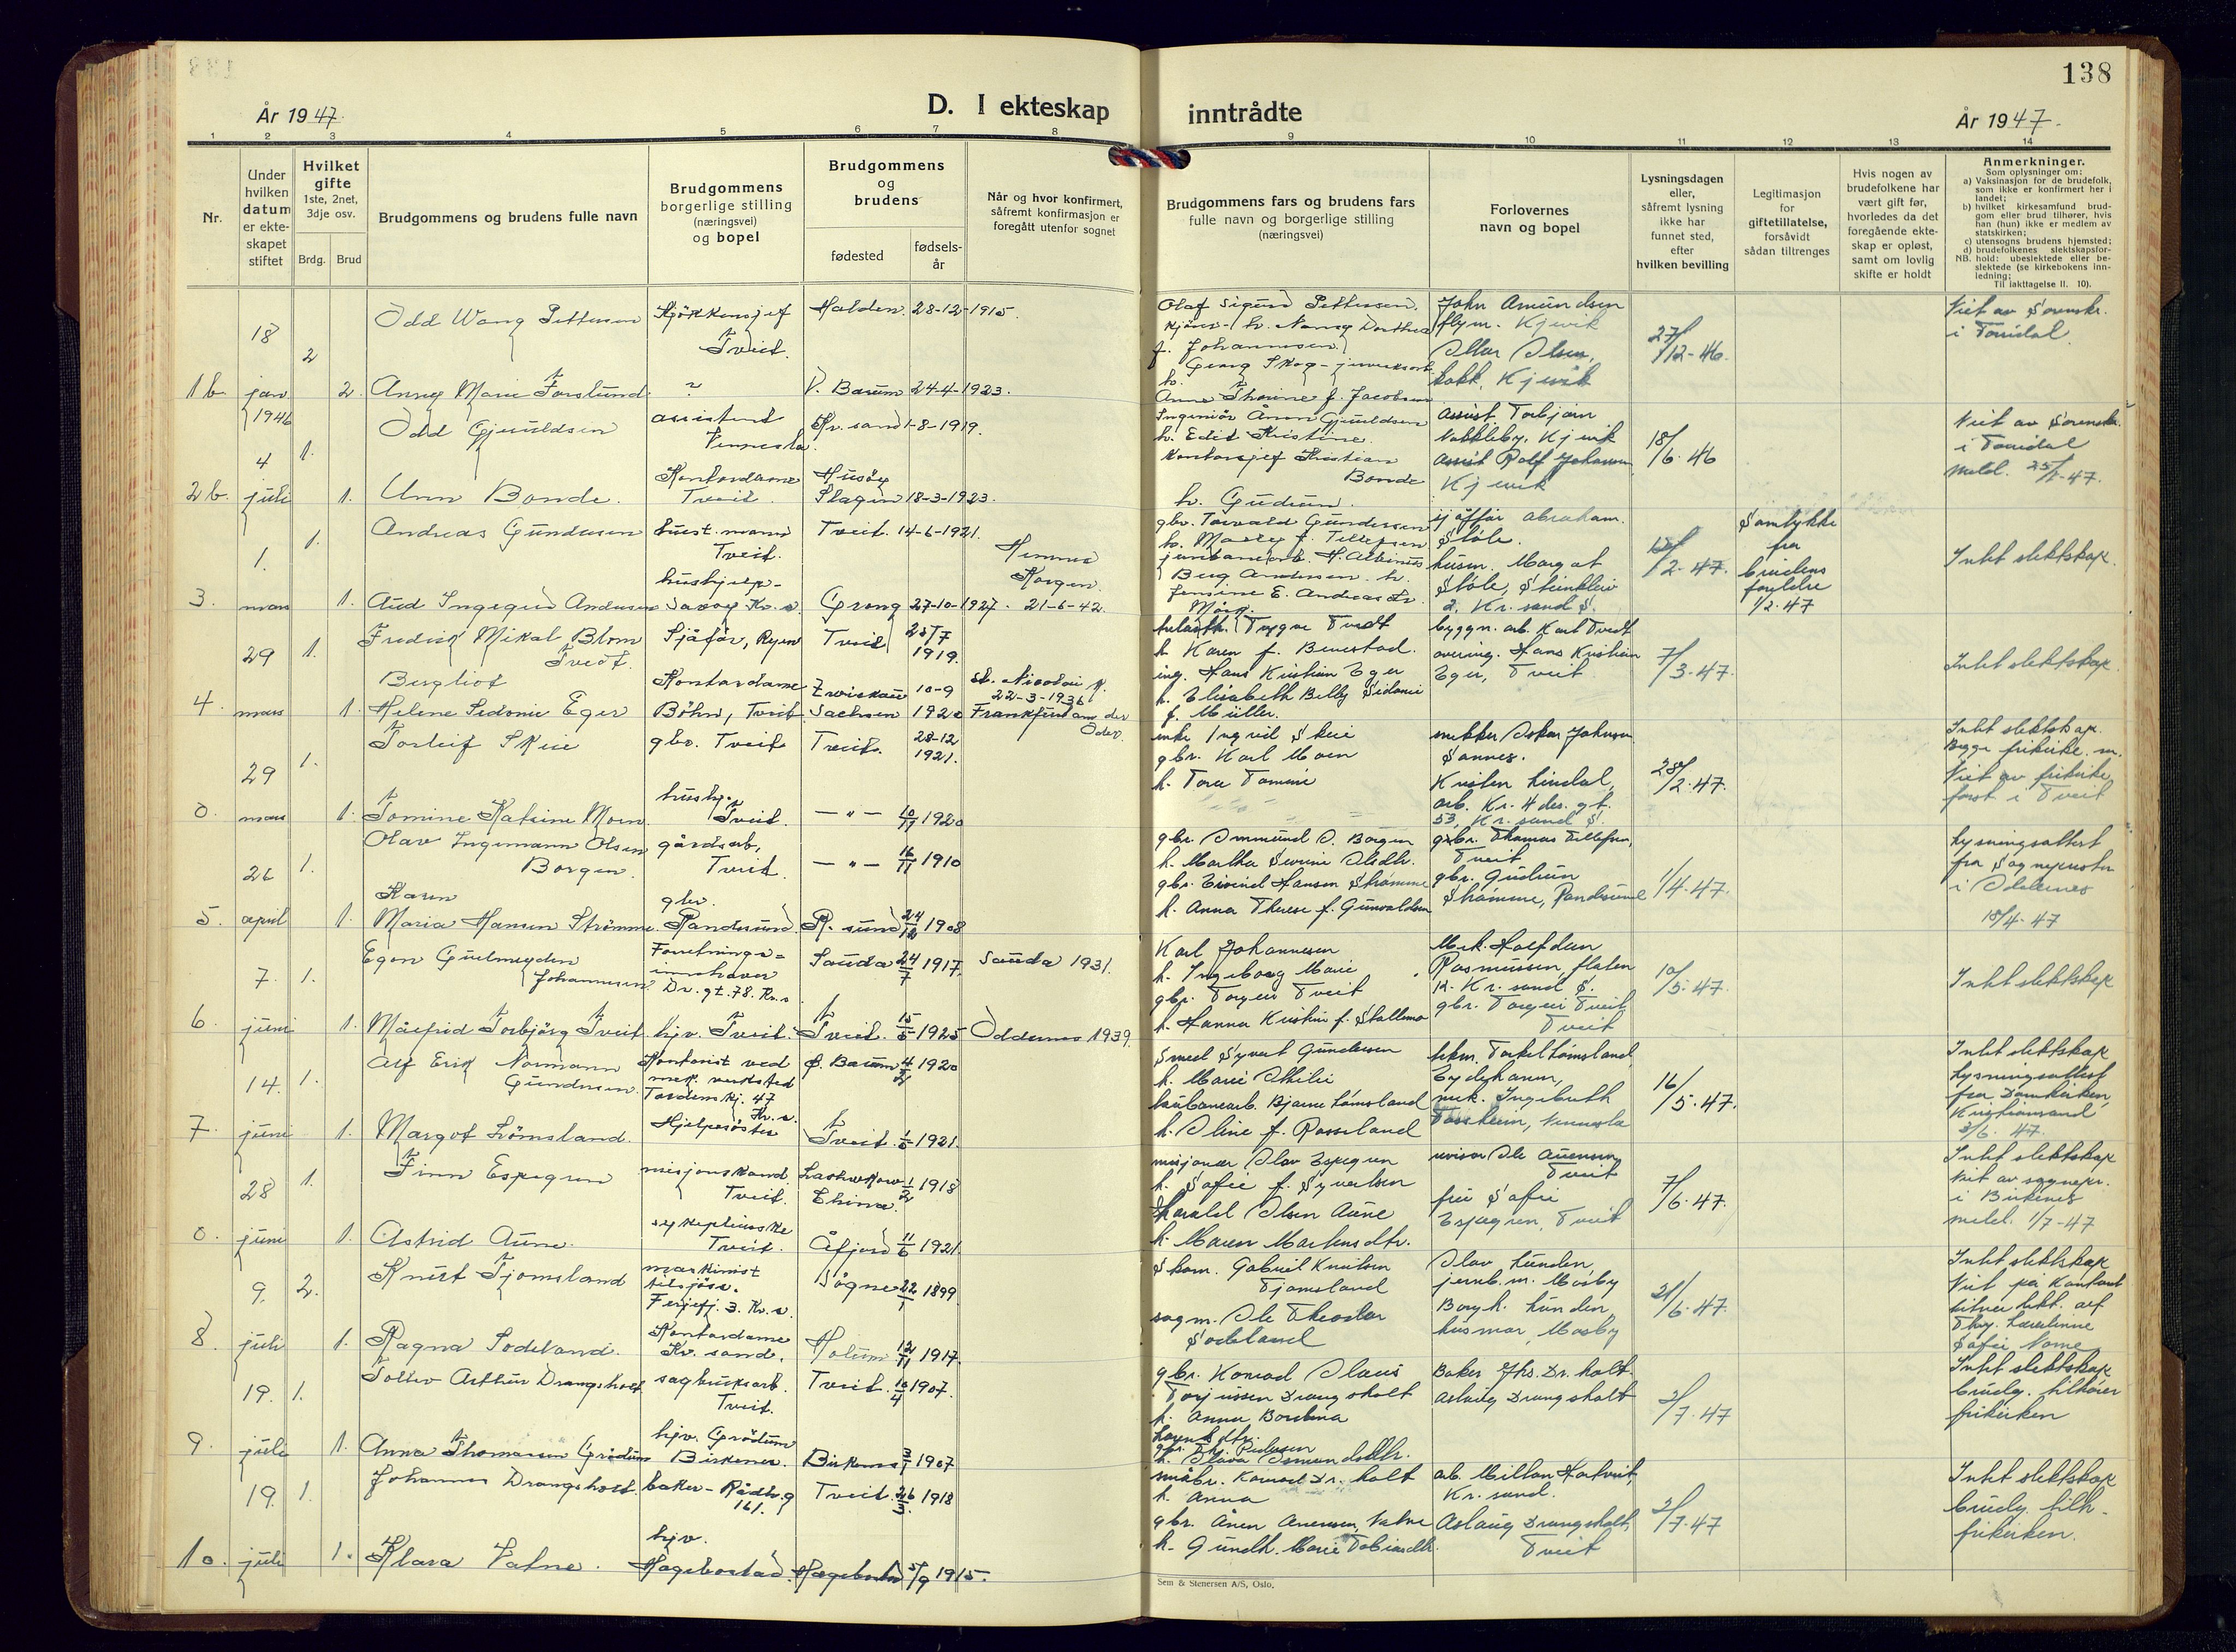 138
År 1947.
D. I ekteskap inntrådte
År 1947.
1 2 3 4 5 6 7 8 9 10 11 12 13 14
Nr.
Under hvilken datum er ekteskapet stiftet
Hvilket gifte 1ste, 2net, 3dje osv.
Brdg. Brud
Brudgommens og brudens fulle navn
Brudgommens borgerlige stilling (næringsvei) og bopel
Brudgommens og brudens
fødested
fødselsår
Når og hvor konfirmert, såfremt konfirmasjon er foregått utenfor sognet
Brudgommens fars og brudens fars fulle navn og borgerlige stilling (næringsvei)
Forlovernes navn og bopel
Lysningsdagen eller, såfremt lysning ikke har funnet sted, efter hvilken bevilling
Legitimasjon for giftetillatelse, forsåvidt sådan tiltrenges
Hvis nogen av brudefolkene har vært gift før, hvorledes da det foregående ekteskap er opløst, samt om lovlig skifte er holdt
Anmerkninger.
Som oplysninger om:
a) Vaksinasjon for de brudefolk, som ikke er konfirmert her i landet;
b) hvilket kirkesamfund brudgom eller brud tilhører, hvis han (hun) ikke er medlem av statskirken;
c) utensogns brudens hjemsted;
d) brudefolkenes slektskapsforhold: ubeslektede eller beslektede (se kirkebokens innledning;
NB. Til iakttagelse II. 10).
18 2 Odd Wang Pettersen Kjökkensjef Tveit. Halden 28-12-1915.
Olaf Sigurd Pettersen. John Amundsen flym. Kjevik 27/12-46. Viet av Sorenskr. i Torridal.
1b. jan 1946 2. Anny Marie Forslund. V. Bærum 24-4-1923.
Georg Skog Kokk, Kjevik
Anna Thorine f. Jacobsen
4 1. Odd Gjeruldsen assistent Vennesla. Kr. sand 1-8-1919.
Ingeniör Ånon Gjeruldsen h. Edit Kristine. Assist. Torbjörn Kjevik 18/6-46 Viet av Sorenskr. i Torridal
2b. juli 1. Unn Bonde. Kontordame Tveit. Husöy Slagen 18-3-1923.
Kontorsjef Kristian Bonde h. Gudrun. Assist Rolf Johansen Kjevik
1. 1. Andreas Gundersen Tveit. Tveit. 14-6-1921.
gbr. Torvald Gundersen sjåfför Abraham Støle. Samtykke fra brudens foreldre 1/2-47
Intet slektskap.
3. mars 1. Aud Ingegerd Andersen hushjelp- Savoy Kr. s. Grong 27-10-1927. Hemnes Korgen. 21-6-42.
husm. Margot Støle, Kr. sand S.
29 1. Fredrik Mikal Blom Tvedt. Sjåför, Ryen Tveit 25/7 1919.
Trygve Tvedt h. Karen f. Benestad. byggn. arb. Karl Tvedt 7/3-47. Intet slektskap.
4. mars 1. Bergliot Helene Sidonie Eger Kontordame Böhn, Tveit Zwickau Sachsen 10-9 1920 St. Nicolai K. 22-3-1936 Frankfurt an der Oder.
ing. Hans Kristian Eger h. Elisabeth Betty Sidonie f. Müller. Hans Kristian Eger, Tveit
29 1. Torleif Skeie gbr. Tveit Tveit. 28-12 1921.
enke Ingrid Skeie snekker Oskar Johnsen Sannes. 28/2-47. Intet slektskap. Begge frikirke m. Viet av frikirke forst. i Tveit
0. mars 1. Tomine Katrine Moen. hushj. Tveit. — " — 10/11 1920
gbr. Karl Moen h. Tora Tomine Kristen Lindal, arb. Kr. 4 des. gt. 53, Kr. sand S.
26 1. Olav Ingemann Olsen Borgen. gårdsarb, Tveit. — " — 16/11 1910
gbr. Ommund O. Borgen h. Martha Severine Olsdtr. gbr. Thomas Tellefsen, Tveit 1/4-47. Lysningsattest fra Sognepresten i Oddernes 18/4-47
5. april 1. Karen Maria Hansen Strömme. gbr. Randesund. R. sund 24/12 1908
gbr. Eivind Hansen Strömme h. Anna Therese f. Gunvaldsen gbr. Gudrun Strömme, Randesund
7. 1. Egon Gulmeyden Johannesen. Forretningsinnehaver Dr. gt. 78. Kr. s. Sauda 24/7 1917. Sauda 1931.
Karl Johannesen h. Ingeborg Marie Mek. Halfdan Rasmussen, flaten 12. Kr. sand S. 10/5-47. Intet slektskap
6. juni 1. Målfrid Torbjörg Tveit hjv. Tveit. Tveit. 15/5 1925 Oddernes 1939.
gbr. Torgeir Tveit h. Hanna Kristine f. Stallemo gbr. Torgeir Tveit, Tveit
14. 1. Alf Erik Normann Gundersen. Kontorist ved mek. verksted Tordenskj. 47 Kr. s. Ö. Bærum 4/2 1920
Smed Syvert Gundersen h. Marie Otilie Torkel Lömsland, Eydehavn, 16/5-47. Intet slektskap Lysningsattest fra Domkirken, Kristiansand 3/6-47.
7. juni 1. Margot Lömsland. Hjelpesöster Tveit. 1/5 1921.
Bjarne Lömsland h. Oline f. Rosseland mek. Ingebreth Vennesla
28 1. Finn Espegren misjonskand. Tveit. Laohokow China. 1/2 1918
misjonær Olav Espegren h. Sofie f. Syvertsen revisor Ole Aanensen, Tveit 7/6-47. Intet slektskap Viet av sognepr. i Birkenes meld. 1/7-47
0. juni 1. Astrid Aune. sykepleierske Tveit. Åfjord 11/6 1921.
Harald Olsen Aune h. Maren Martensdtr. fru Sofie Espegren, Tveit
9. 2. Knut Tjomsland maskinist tilsjös. Ferjefj. 3. Kr. s. Sögne 22/1 1899.
Skom. Gabriel Knutsen Tjomsland Olav Lunden, jernb. m. Mosby 21/6-47. Intet slektskap
8. juli 1. Ragna Sodeland. Kontordame Kr. sand. Holum 12/11 1917.
sagm. Ole Theodor Sodeland Borgh. Lunden, husmor, Mosby
19. 1. Tollev Arthur Drangsholt sagbruksarb. Tveit. Tveit. 10/4 1907.
gbr. Konrad Olaus Torjussen Drangsholt h. Anna Bordina Baker Johs. Dr. holt. Aslaug Drangsholt 2/7-47 Intet slektskap brudg. tilhörer frikirken
9. juli 1. Anna Thomasen Grödum hjv. Grödum Birkenes. Birkenes 3/1 1907
19. 1. Johannes Drangsholt. baker - Rådh. g 161. Tveit. 26/3 1918
småbr. Konrad Dr. holt h. Anna arb. Milton Kr. sand. 2/7-47 Intet slektskap brudg. tilh. frikirken.
10. juli 1. Klara Vatne. hjv. Hægebostad. Hægebostad 5/9 1915.
gbr. Ånen Anensen, Vatne h. Gundh. Marie Tobiasdtr. Aslaug Drangsholt, Tveit
Sem & Stenersen A/S, Oslo.